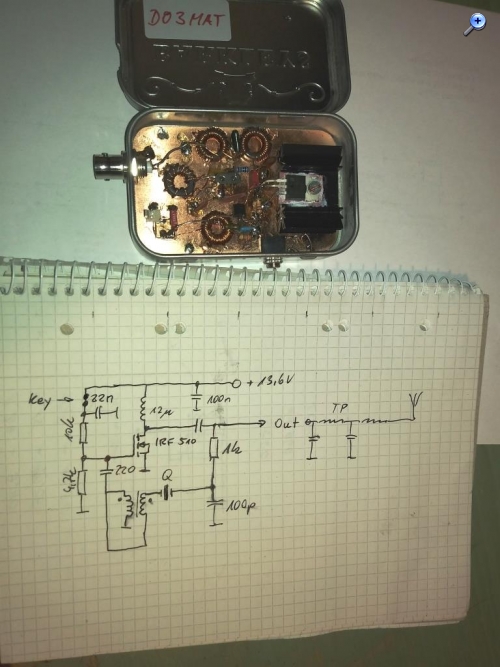 DO3MAT
Key →
22n
12µ
100n
+ 13,6V
10k
IRF 510
Out
TP
4,7k
220
Q
1k
100p